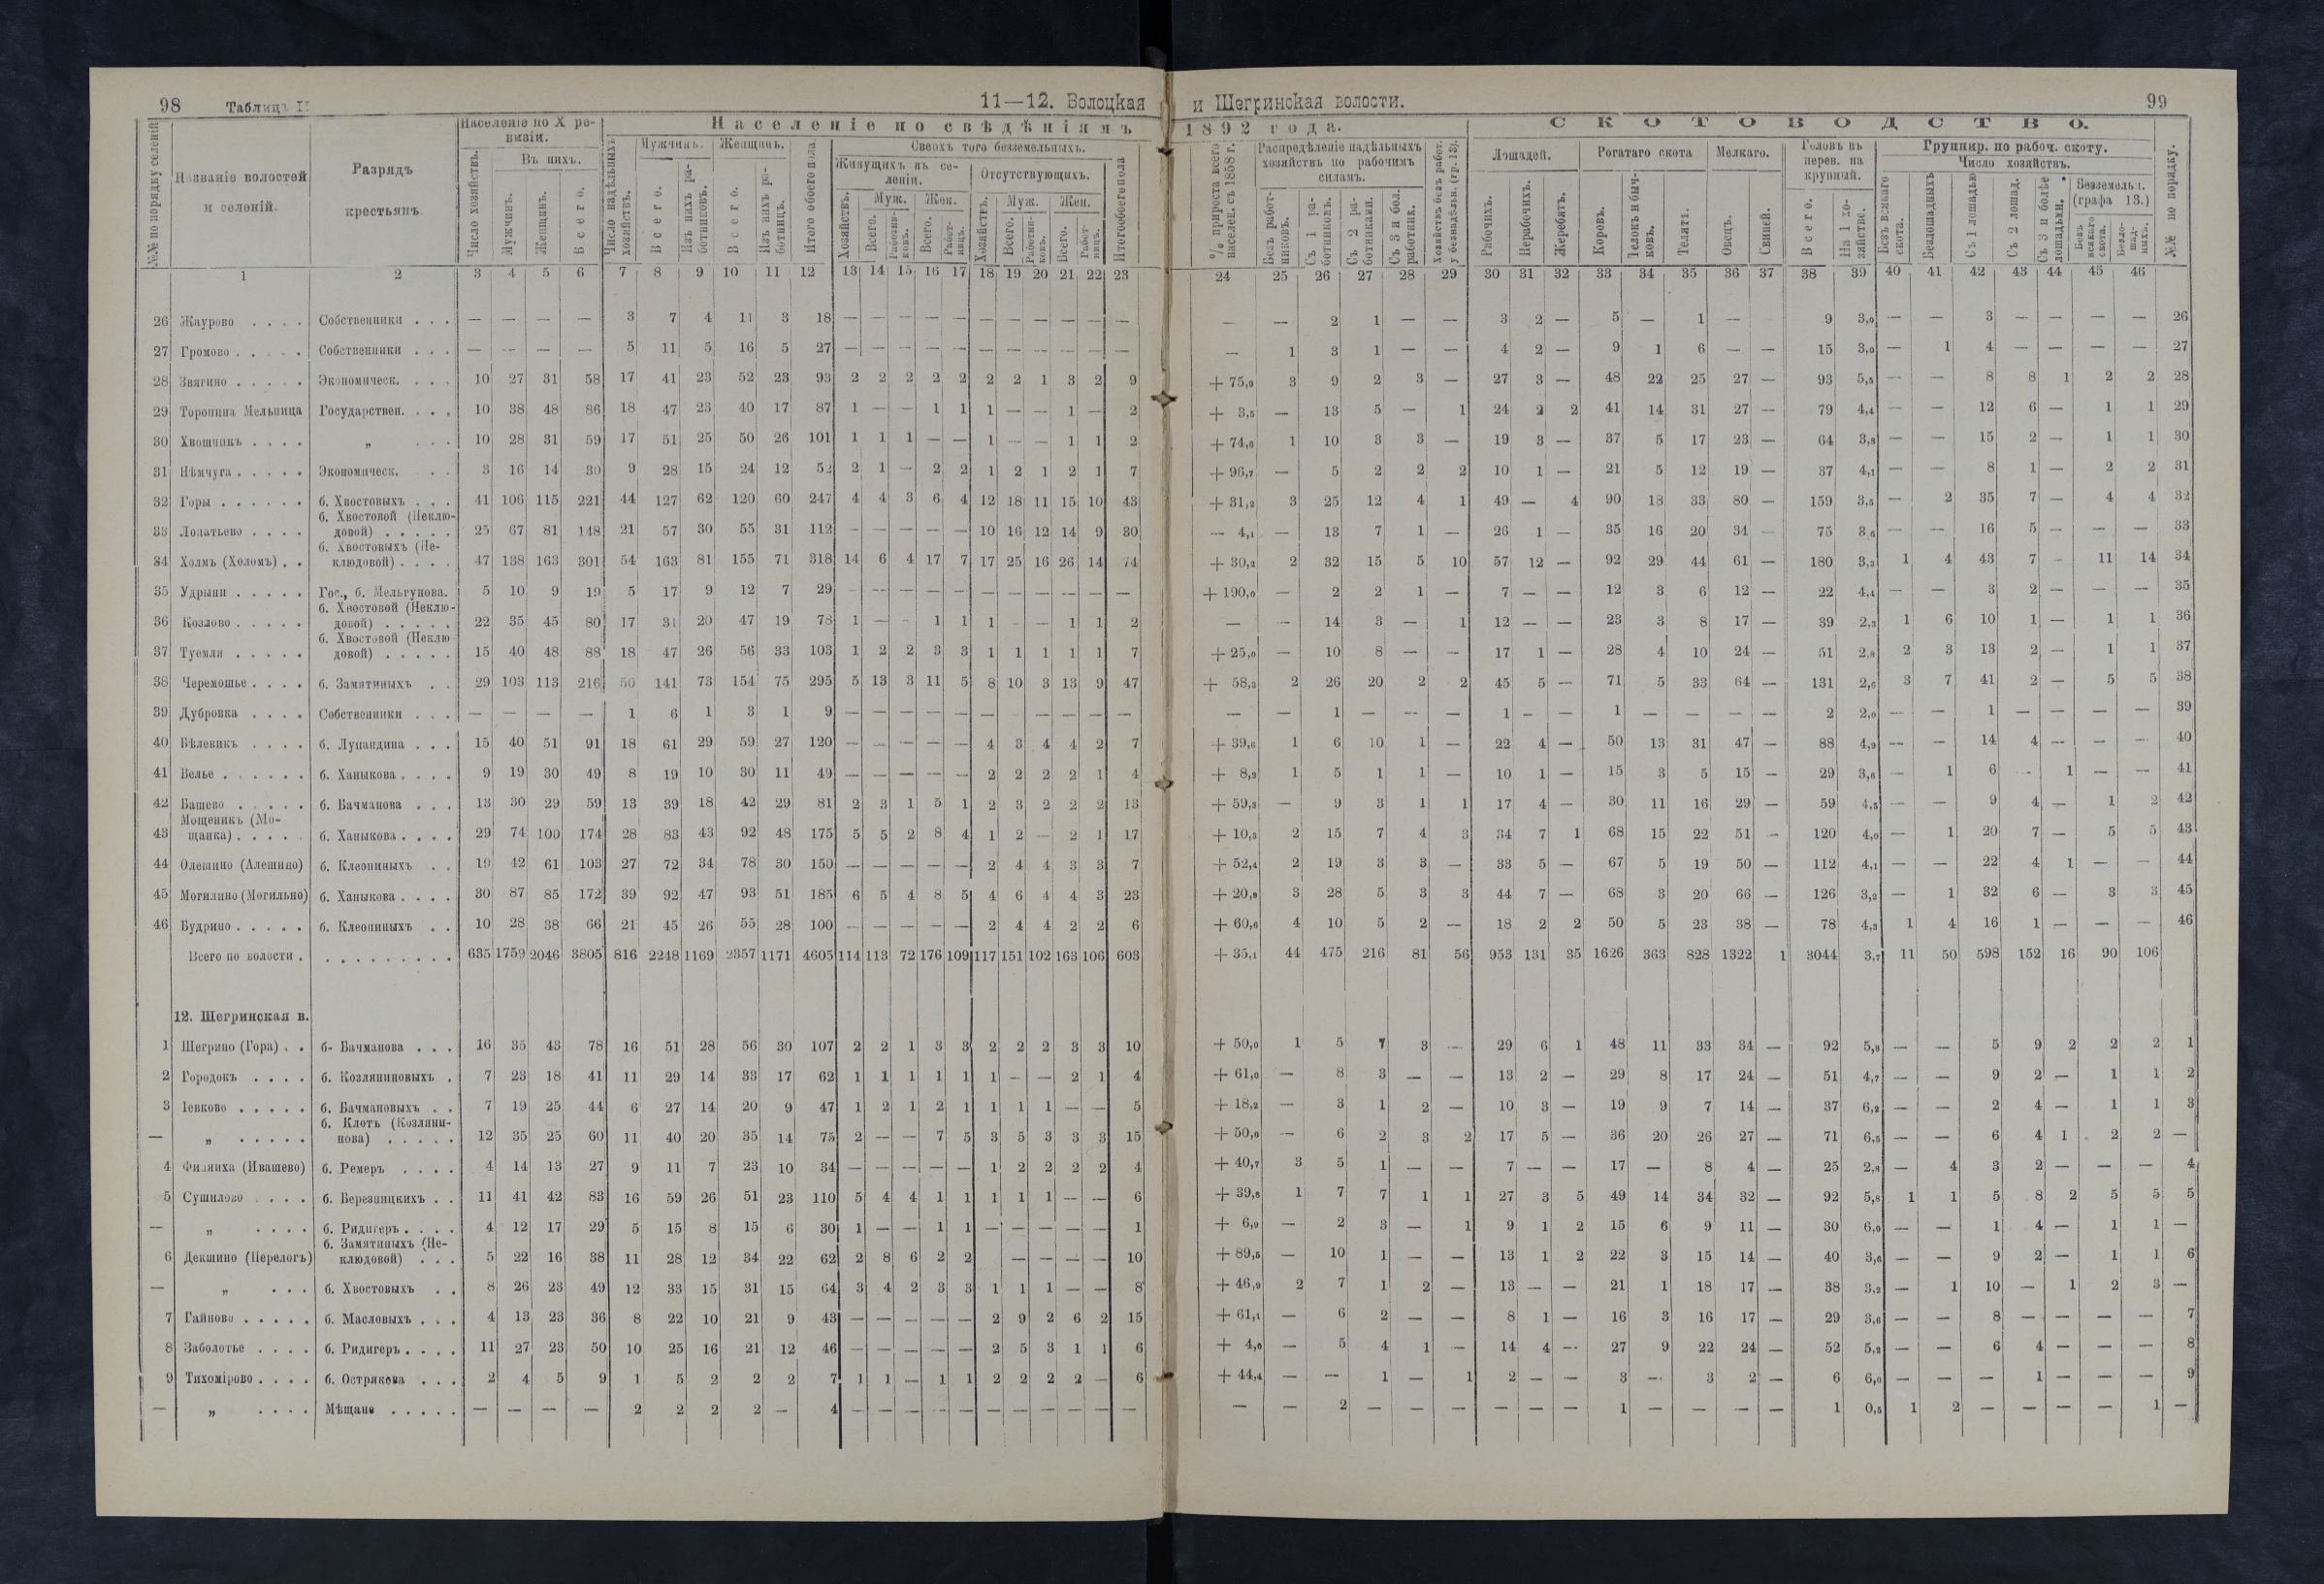 98 Таблиц II
11—12. Волоцкая и Шегринская волости. 99
Населеніе по Х ревизіи. Населеніе по свѣдѣніямъ 1892 года. СКОТОВОДСТВО.
№№ по порядку селеній
Названіе волостей и селеній.
Разрядъ крестьянъ.
Число хозяйствъ.
Въ нихъ.
Мужчинъ.
Женщинъ.
Всего.
Число надѣльныхъ хозяйствъ.
Мужчинъ.
Всего.
Изъ нихъ работниковъ.
Женщинъ.
Всего.
Изъ нихъ работницъ.
Итого обоего пола.
Сверхъ того безземельныхъ.
Живущихъ въ селеніи.
Отсутствующихъ.
% прироста всего населен. съ 1858 г.
Распредѣленіе надѣльныхъ хозяйствъ по рабочимъ силамъ.
Безъ работниковъ.
Съ 1 работникомъ.
Съ 2 работниками.
Съ 3 и бол. работник.
Лошадей.
Рабочихъ.
Нерабочихъ.
Жеребятъ.
Рогатаго скота
Коровъ.
Телокъ и бычковъ.
Телятъ.
Мелкаго.
Овецъ.
Свиней.
Головъ въ перев. на крупный.
Всего.
На 1 хозяйство.
Группир. по рабоч. скоту.
Число хозяйствъ.
Безъ всякаго скота.
Безлошадныхъ
Съ 1 лошадью
Съ 2 лошад.
Съ 3 и болѣе лошадьми.
Безземельн. (графа 13.)
Безъ всякаго скота.
Безлошадныхъ.
№№ по порядку.
1 2 3 4 5 6 7 8 9 10 11 12 13 14 15 16 17 18 19 20 21 22 23 24 25 26 27 28 29 30 31 32 33 34 35 36 37 38 39 40 41 42 43 44 45 46
26 Жаурово . . . . Собственники . . . — — — — 3 7 4 11 3 18 — — — — — — — — — — — — — 2 1 — — 3 2 — 5 — 1 — 9 3,0 — — 3 — — — — 26
27 Громово . . . . . Собственники . . . — — — — 5 11 5 16 5 27 — — — — — — — — — — — — 1 3 1 — — 4 2 — 9 1 6 — — 15 3,0 — 1 4 — — — — 27
28 Звягино . . . . . Экономическ. . . . 10 27 31 58 17 41 23 52 23 93 2 2 2 2 2 2 2 1 3 2 9 + 75,9 3 9 2 3 — 27 3 — 48 22 25 27 — 93 5,5 — — 8 8 1 2 2 28
29 Торопина Мельница Государствен. . . . 10 38 48 86 18 47 23 40 17 87 1 — — 1 1 1 — — 1 — 2 + 3,5 — 13 5 — 1 24 2 2 41 14 31 27 — 79 4,4 — — 12 6 — 1 1 29
30 Хвощникъ . . . . „ . . . 10 28 31 59 17 51 25 50 26 101 1 1 1 — — 1 — — 1 1 2 + 74,6 1 10 3 3 — 19 3 — 37 5 17 23 — 64 3,8 — — 15 2 — 1 1 30
31 Нѣмчуга . . . . . Экономическ. . . 3 16 14 30 9 28 15 24 12 52 2 1 — 2 2 1 2 1 2 1 7 + 96,7 — 5 2 2 2 10 1 — 21 5 12 19 — 37 4,1 — — 8 1 — 2 2 31
32 Горы . . . . . . б. Хвостовыхъ . . . 41 106 115 221 44 127 62 120 60 247 4 4 3 6 4 12 18 11 15 10 43 + 31,2 3 25 12 4 1 49 — 4 90 18 33 80 — 159 3,5 — 2 35 7 — 4 4 32
33 Лопатьево . . . . б. Хвостовой (Неклюдовой) . . . . . 25 67 81 148 21 57 30 55 31 112 — — — — — 10 16 12 14 9 30 — 4,1 — 13 7 1 — 26 1 — 35 16 20 34 — 75 3,6 — — 16 5 — — — 33
34 Холмъ (Холомъ) . . б. Хвостовыхъ (Неклюдовой) . . . . 47 138 163 301 54 163 81 155 71 318 14 6 4 17 7 17 25 16 26 14 74 + 30,2 2 32 15 5 10 57 12 — 92 29 44 61 — 180 3,3 1 4 43 7 - 11 14 34
35 Удрыни . . . . . Гос., б. Мельгунова. 5 10 9 19 5 17 9 12 7 29 — — — — — — — — — — — + 190,0 — 2 2 1 — 7 — — 12 3 6 12 — 22 4,4 — — 3 2 — — — 35
36 Козлово . . . . . б. Хвостовой (Неклюдовой) . . . . . 22 35 45 80 17 31 20 47 19 78 1 — - 1 1 1 - — 1 1 2 — - 14 3 — 1 12 — — 23 3 8 17 — 39 2,3 1 6 10 1 — 1 1 36
37 Туемли . . . . . б. Хвостовой (Неклюдовой) . . . . . 15 40 48 88 18 47 26 56 33 103 1 2 2 3 3 1 1 1 1 1 7 + 25,0 — 10 8 — — 17 1 — 28 4 10 24 — 51 2,8 2 3 13 2 — 1 1 37
38 Черемошье . . . . б. Замятиныхъ . . 29 103 113 216 50 141 73 154 75 295 5 13 3 11 5 8 10 3 13 9 47 + 58,3 2 26 20 2 2 45 5 — 71 5 33 64 — 131 2,6 3 7 41 2 — 5 5 38
39 Дубровка . . . . Собственники . . . — — — — 1 6 1 3 1 9 — — — — — — — — — — — — 1 — — — 1 - — 1 — — — — 2 2,0 — — 1 — — — — 39
40 Бѣлевикъ . . . . б. Лупандина . . . 15 40 51 91 18 61 29 59 27 120 — — — — — 4 3 4 4 2 7 + 39,6 1 6 10 1 — 22 4 — 50 13 31 47 — 88 4,9 — — 14 4 — — - 40
41 Велье . . . . . . б. Ханыкова . . . . 9 19 30 49 8 19 10 30 11 49 — — — — — 2 2 2 2 1 4 + 8,2 1 5 1 1 — 10 1 — 15 3 5 15 — 29 3,6 — 1 6 - 1 — — 41
42 Вашево . . . . . б. Бачманова . . . 13 30 29 59 13 39 18 42 29 81 2 3 1 5 1 2 3 2 2 2 13 + 59,3 — 9 3 1 1 17 4 — 30 11 16 29 — 59 4,5 — — 9 4 — 1 2 42
43 Мощеникъ (Мощанка) . . . . . б. Ханыкова . . . . 29 74 100 174 28 83 43 92 48 175 5 5 2 8 4 1 2 — 2 1 17 + 10,3 2 15 7 4 3 34 7 1 68 15 22 51 - 120 4,0 — 1 20 7 — 5 5 43
44 Олешино (Алешино) б. Клеопиныхъ . . 19 42 61 103 27 72 34 78 30 150 — — — — — 2 4 4 3 3 7 + 52,4 2 19 3 3 — 33 5 — 67 5 19 50 — 112 4,1 — — 22 4 1 — — 44
45 Могилино (Могильно) б. Ханыкова . . . . 30 87 85 172 39 92 47 93 51 185 6 5 4 8 5 4 6 4 4 3 23 + 20,9 3 28 5 3 3 44 7 — 68 3 20 66 — 126 3,2 — 1 32 6 — 3 3 45
46 Будрино . . . . . б. Клеопиныхъ . . 10 28 38 66 21 45 26 55 28 100 — — — — — 2 4 4 2 2 6 + 60,6 4 10 5 2 — 18 2 2 50 5 23 38 — 78 4,3 1 4 16 1 — — — 46
Всего по волости . . . . . . . . . . 635 1759 2046 3805 816 2248 1169 2357 1171 4605 114 113 72 176 109 117 151 102 163 106 603 + 35,1 44 475 216 81 56 953 131 35 1626 363 828 1322 1 3044 3,7 11 50 598 152 16 90 106
12. Шегринская в.
1 Шегрино (Гора) . . б- Бачманова . . . 16 35 43 78 16 51 28 56 30 107 2 2 1 3 3 2 2 2 3 3 10 + 50,0 1 5 7 3 — 29 6 1 48 11 33 34 — 92 5,8 — — 5 9 2 2 2 1
2 Городокъ . . . . б. Козляниновыхъ . 7 23 18 41 11 29 14 33 17 62 1 1 1 1 1 1 — — 2 1 4 + 61,0 — 8 3 — — 13 2 — 29 8 17 24 — 51 4,7 — — 9 2 — 1 1 2
3 Іевково . . . . . б. Бачмановыхъ . . 7 19 25 44 6 27 14 20 9 47 1 2 1 2 1 1 1 1 — — 5 + 18,2 — 3 1 2 — 10 3 — 19 9 7 14 — 37 6,2 — — 2 4 — 1 1 3
— „ . . . . . б. Клотъ (Козлянинова) . . . . . 12 35 25 60 11 40 20 35 14 75 2 — — 7 5 3 5 3 3 3 15 + 50,0 — 6 2 3 2 17 5 — 36 20 26 27 — 71 6,5 — — 6 4 1 2 2 —
4 Филяиха (Ивашево) б. Ремеръ . . . . 4 14 13 27 9 11 7 23 10 34 — — — — — 1 2 2 2 2 4 + 40,7 3 5 1 — — 7 — — 17 — 8 4 — 25 2,8 — 4 3 2 — — — 4
5 Сушилово . . . . б. Березницкихъ . . 11 41 42 83 16 59 26 51 23 110 5 4 4 1 1 1 1 1 — — 6 + 39,8 1 7 7 1 1 27 3 5 49 14 34 32 — 92 5,8 1 1 5 8 2 5 5 5
— „ . . . . б. Ридигеръ . . . . 4 12 17 29 5 15 8 15 6 30 1 — — 1 1 — — — — — 1 + 6,9 — 2 3 — 1 9 1 2 15 6 9 11 — 30 6,0 — — 1 4 — 1 1 —
6 Декшино (Перелогъ) б. Замятиныхъ (Неклюдовой) . . . 5 22 16 38 11 28 12 34 22 62 2 8 6 2 2 — — — — 10 + 89,5 — 10 1 — — 13 1 2 22 3 15 14 — 40 3,6 — — 9 2 — 1 1 6
— „ . . . б. Хвостовыхъ . . 8 26 23 49 12 33 15 31 15 64 3 4 2 3 3 1 1 1 — — 8 + 46,9 2 7 1 2 — 13 — — 21 1 18 17 — 38 3,2 — 1 10 — 1 2 3 —
7 Гайново . . . . . б. Масловыхъ . . . 4 13 23 36 8 22 10 21 9 43 — — — — — 2 9 2 6 2 15 + 61,1 — 6 2 — — 8 1 — 16 3 16 17 — 29 3,6 — — 8 — — — — 7
8 Заболотье . . . . б. Ридигеръ . . . . 11 27 23 50 10 25 16 21 12 46 — — — — — 2 5 3 1 1 6 + 4,0 — 5 4 1 — 14 4 — 27 9 22 24 — 52 5,2 — — 6 4 — — — 8
9 Тихомірово . . . . б. Острякова . . . 2 4 5 9 1 5 2 2 2 7 1 1 — 1 1 2 2 2 2 — 6 + 44,4 — — 1 — 1 2 — — 3 — 3 2 — 6 6,0 — — — 1 — — — 9
— „ . . . . Мѣщане . . . . . — — — — 2 2 2 2 — 4 — — — — — — — — — — — — — 2 — — — — — — 1 — — — — 1 0,5 1 2 — — — — 1 —